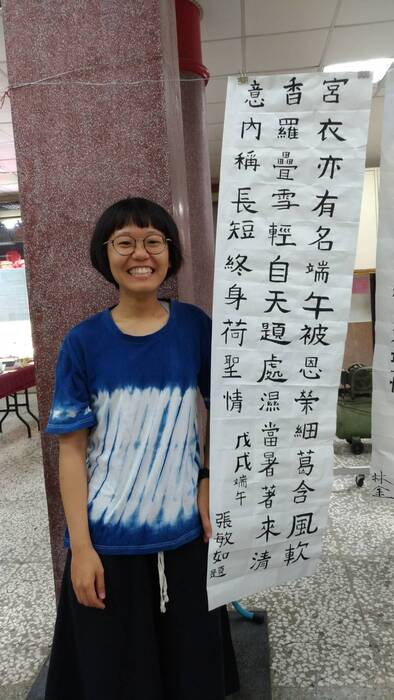 宮衣亦有名端午被恩榮細葛含風軟
香羅疊雪輕自天題處濕當暑著來清
意內稱長短終身荷聖情 戊戌端午 張敏如題